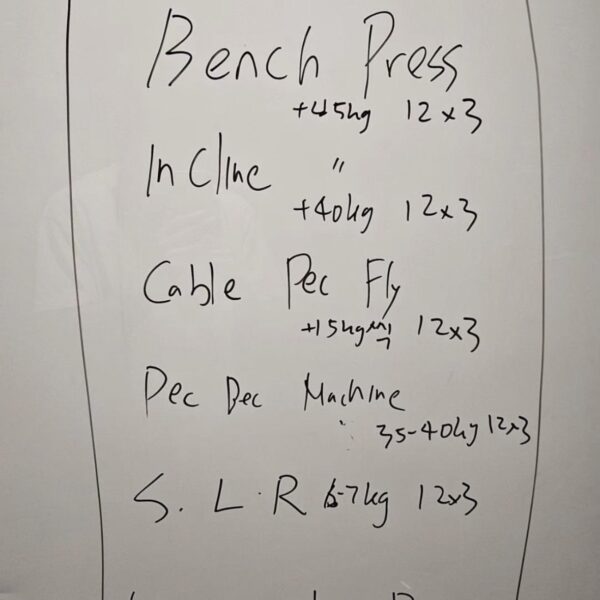 Bench Press
+45kg 12x3
Incline "
+40kg 12x3
Cable Pec Fly
+15kg 12x3
Pec Dec Machine
35-40kg 12x3
S. L. R 6-7kg 12x3